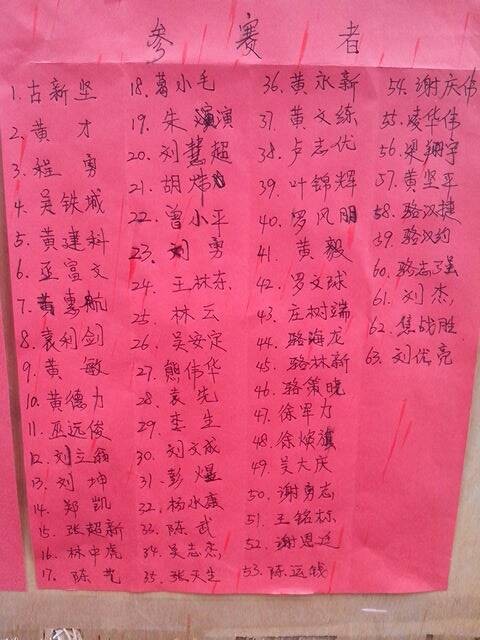 参赛者
1. 古新坚
2. 黄才
3. 程勇
4. 吴铁城
5. 黄建科
6. 巫富文
7. 黄惠航
8. 袁利剑
9. 黄敏
10. 黄德力
11. 巫远俊
12. 刘立翁
13. 刘坤
14. 郑凯
15. 张超新
16. 林中虎
17. 陈艺
18. 葛小毛
19. 朱演
20. 刘慧超
21. 胡炜
22. 曾小平
23. 刘勇
24. 王林东
25. 林云
26. 吴安定
27. 熊伟华
28. 袁先
29. 李生
30. 刘文成
31. 彭煜
32. 杨水康
33. 陈武
34. 吴志杰
35. 张天生
36. 黄永新
37. 黄文练
38. 卢志优
39. 叶锦辉
40. 罗凤明
41. 黄毅
42. 罗文球
43. 庄树端
44. 骆海龙
45. 骆林新
46. 骆策晓
47. 徐军力
48. 徐焕旗
49. 吴大庆
50. 谢勇志
51. 王铭栋
52. 谢恩廷
53. 陈运钱
54. 谢庆伟
55. 凌华伟
56. 梁翔宇
57. 黄坚平
58. 骆汉捷
59. 骆汉灼
60. 骆志强
61. 刘杰
62. 焦战胜
63. 刘优亮